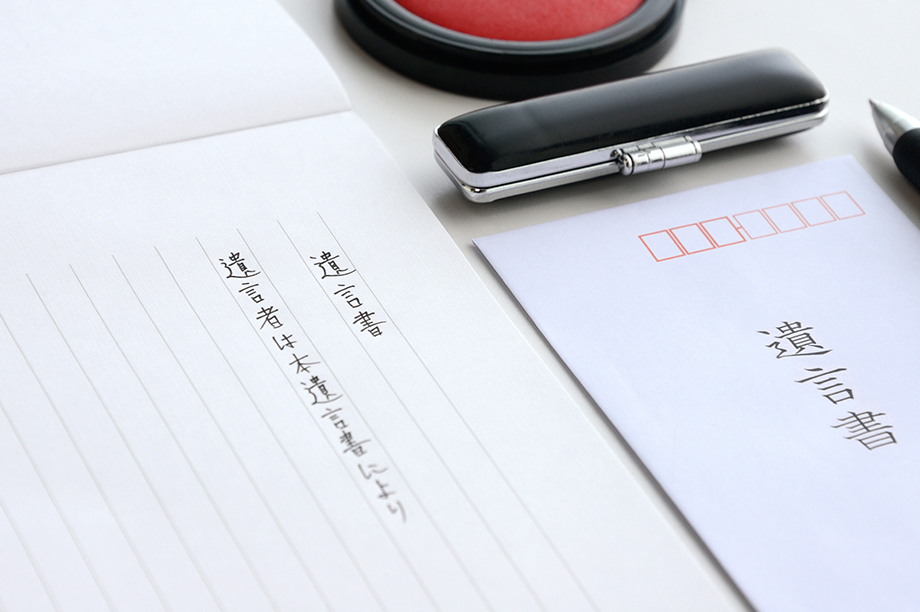 遺言書
遺言者は本遺言書により
遺言書